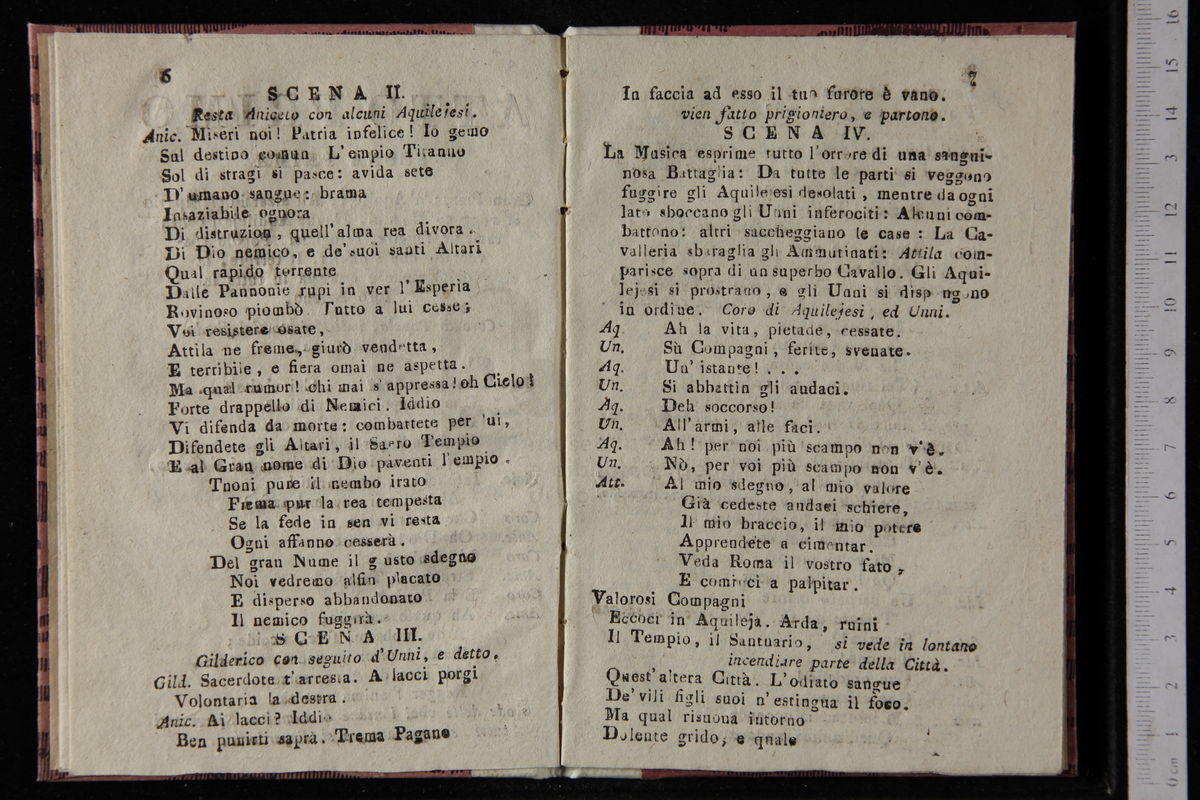 6
SCENA II.
Resta Aniceto con alcuni Aquilejesi.
Anic. Miseri noi! Patria infelice! Io gemo
Sul destino comun L'empio Tiranno
Sol di stragi si pasce: avida sete
D'umano sangue: brama
Insaziabile ognora
Di distruzion, quell'alma rea divora.
Di Dio nemico, e de'suoi santi Altari
Qual rapido torrente
Dalle Pannonie rupi in ver l'Esperia
Rovinoso piombò. Tutto a lui cesse;
Voi resistere osate,
Attila ne freme, giurò vendetta,
E terribile, e fiera omai ne aspetta.
Ma qual rumor! chi mai s'appressa! oh Cielo!
Forte drappello di Nemici. Iddio
Vi difenda da morte: combattete per lui,
Difendete gli Altari, il Sacro Tempio
E al Gran nome di Dio paventi l'empio.
Tnoni pure il nembo irato
Frema pur la rea tempesta
Se la fede in sen vi resta
Ogni affanno cesserà.
Del gran Nume il giusto sdegno
Noi vedremo alfin placato
E disperso abbandonato
Il nemico fuggirà.
SCENA III.
Gilderico con seguito d'Unni, e detto.
Gild. Sacerdote t'arresta. A lacci porgi
Volontaria la destra.
Anic. Ai lacci? Iddio
Ben punirti saprà. Trema Pagano
7
In faccia ad esso il tuo furore è vano.
vien fatto prigioniero, e partono.
SCENA IV.
La Musica esprime tutto l'orrore di una sangui-
nosa Battaglia: Da tutte le parti si veggono
fuggire gli Aquilejesi desolati, mentre da ogni
lato sboccano gli Unni inferociti: Alcuni com-
battono: altri saccheggiano le case: La Ca-
valleria sbaraglia gli Ammutinati: Attila com-
parisce sopra di un superbo Cavallo. Gli Aqui-
lejesi si prostrano, e gli Unni si dispongono
in ordine. Coro di Aquilejesi, ed Unni.
Aq. Ah la vita, pietade, cessate.
Un. Sù Compagni, ferite, svenate.
Aq. Un'istante! . . .
Un. Si abbattin gli audaci.
Aq. Deh soccorso!
Un. All'armi, alle faci.
Aq. Ah! per noi più scampo non v'è.
Un. Nò, per voi più scampo non v'è.
Att. Al mio sdegno, al mio valore
Già cedeste audaci schiere,
Il mio braccio, il mio potere
Apprendete a cimentar.
Veda Roma il vostro fato,
E cominci a palpitar.
Valorosi Compagni
Eccoci in Aquileja. Arda, ruini
Il Tempio, il Santuario, si vede in lontano
incendiare parte della Città.
Quest'altera Città. L'odiato sangue
De'vili figli suoi n'estingua il foco.
Ma qual risuona intorno
Dolente grido, e quale
16
15
14
13
12
11
10
9
8
7
6
5
4
3
2
1
0 cm